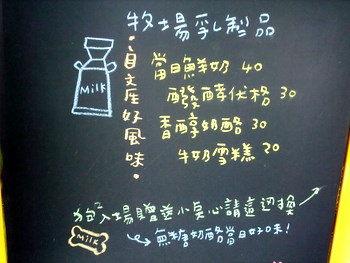 牧場乳製品
Milk
自文座好風味
當日鮮奶 40
醱酵优格 30
香醇奶酪 30
牛奶雪糕 20
狗包入場與贈送小点心請這边換
Milk
無糖奶酪當日好口味!